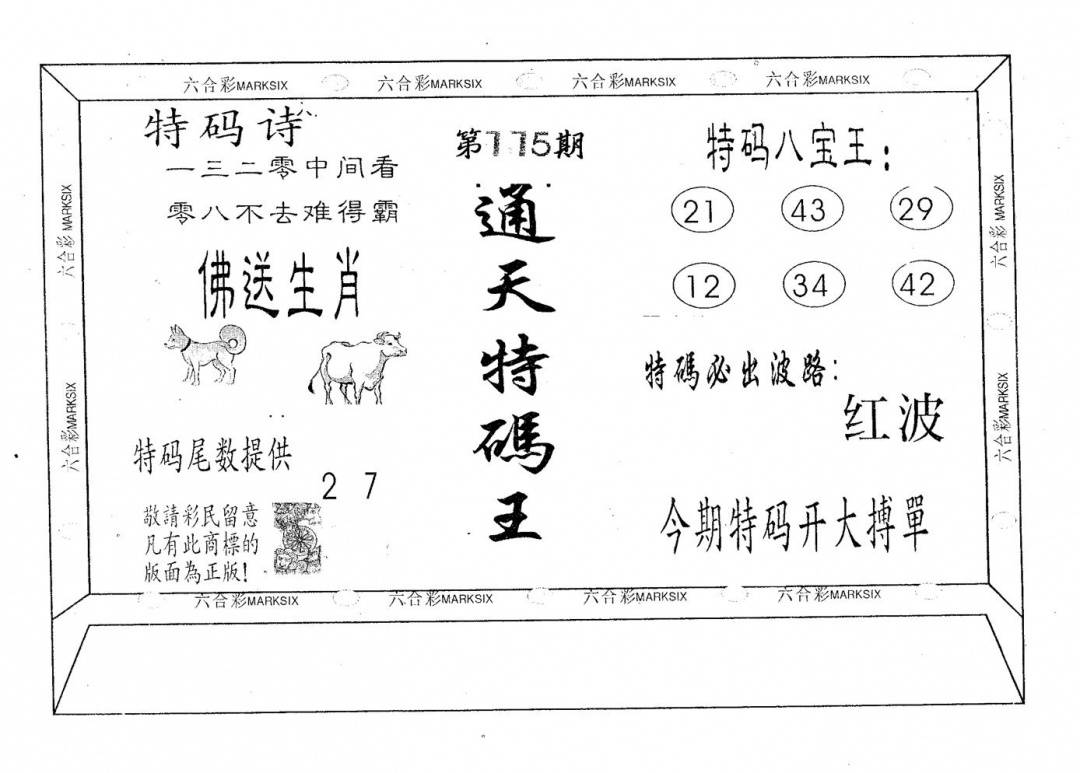 六合彩MARKSIX 六合彩MARKSIX 六合彩MARKSIX 六合彩MARKSIX
六合彩 MARKSIX
六合彩MARKSIX
特码诗
一三二零中间看
零八不去难得霸
佛送生肖
特码尾数提供
2 7
敬請彩民留意
凡有此商標的
版面為正版!
第115期
通天特碼王
特码八宝王:
21 43 29
12 34 42
特碼必出波路:
红波
今期特码开大搏單
六合彩 MARKSIX
六合彩MARKSIX
六合彩MARKSIX 六合彩MARKSIX 六合彩MARKSIX 六合彩MARKSIX